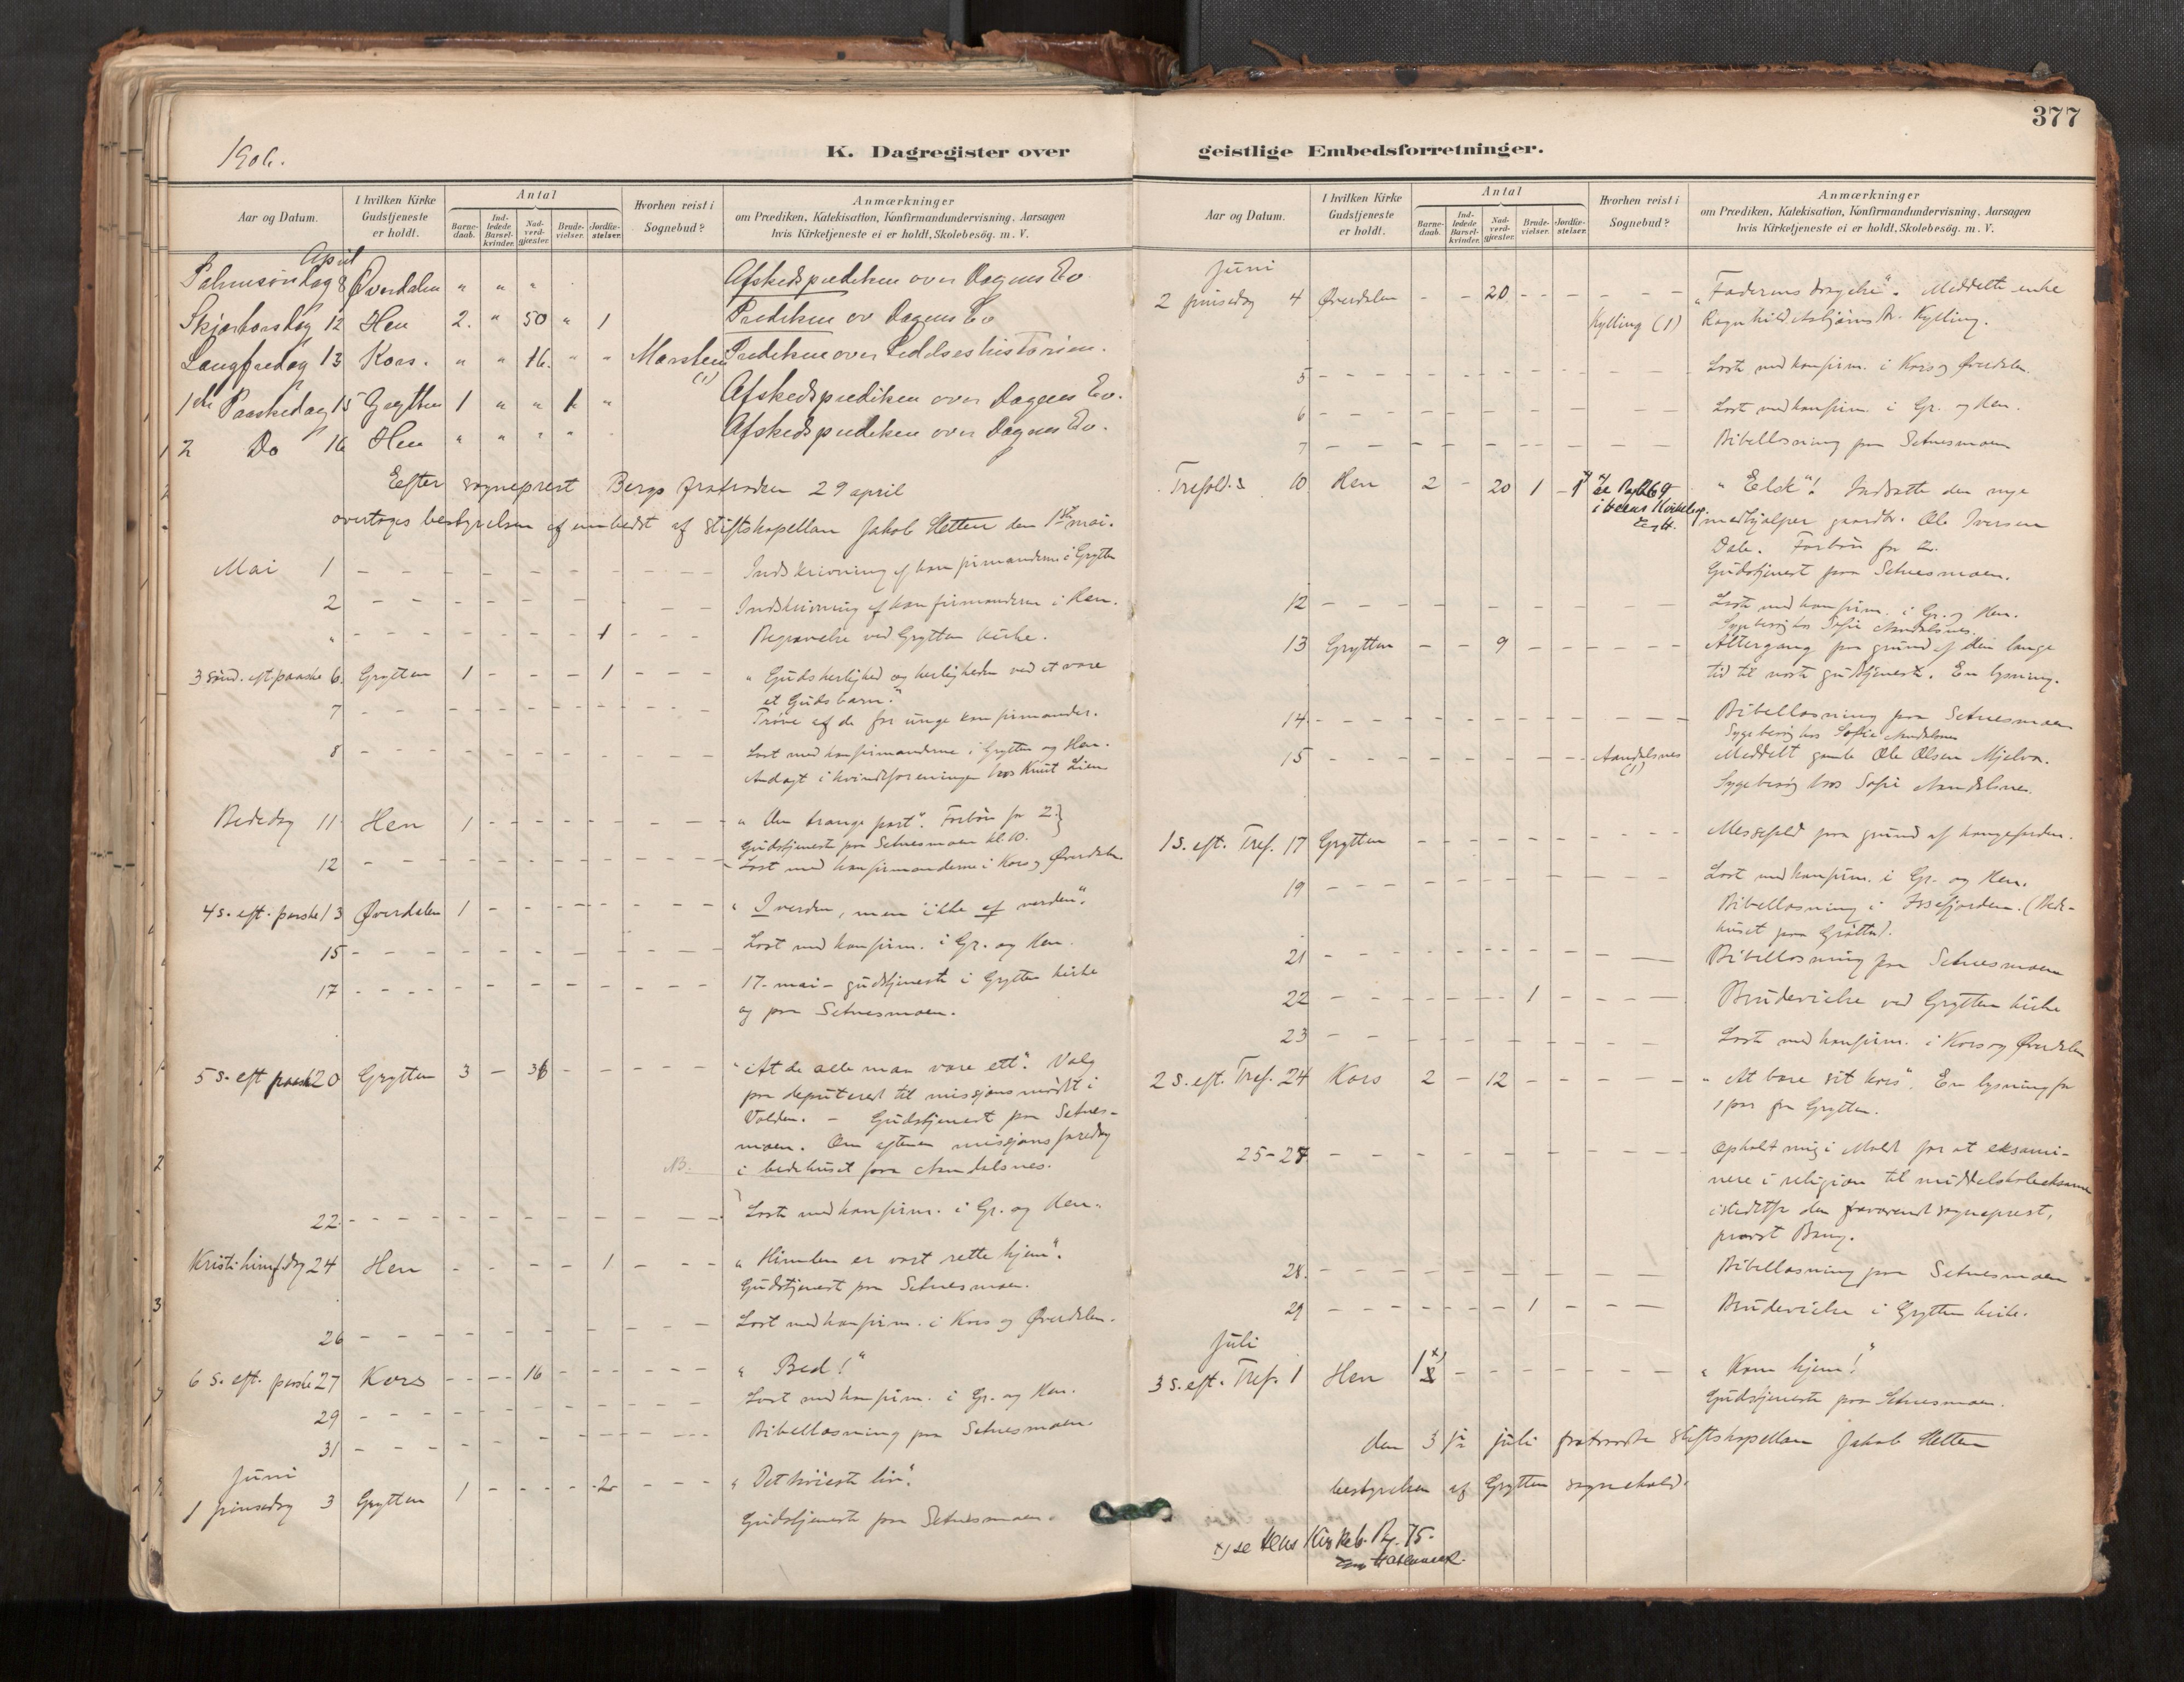 1906.
K. Dagregister over
Aar og Datum.
I hvilken Kirke Gudstjeneste er holdt.
Antal
Barne-daab.
Ind-ledede Barsel-kvinder.
Nad-verd-gjæster.
Brude-vielser.
Jordfæ-stelser.
Hvorhen reist i Sognebud?
Anmærkninger
om Prædiken, Katekisation, Konfirmandundervisning, Aarsagen
hvis Kirketjeneste ei er holdt, Skolebesög. m. V.
April
Palmesøndag 8 Øverdalen " " " Afskedsprediken over Dagens Ev
Skjærtorsdag 12 Hen 2. " 50 " 1 Prediken ov Dagens Ev
Langfredag 13 Kors. " " 16. " " Marstein (1) Prediken over Lidelseshistorien.
1ste Paaskedag 15 Grytten 1 " " 1 " Afskedsprediken over Dagens Ev.
2 Do 16 Hen " " " " Afskedsprediken over Dagens Ev.
Efter sogneprest Bergs fratræden 29 april
overtoges bestyrelsen af embedet af stiftskapellan Jakob Sletten den 1ste mai.
Mai 1 - - - - - - - - Indskrivning af konfirmanderne i Grytten
2 - - - - - - - - Indskrivning af konfirmanderne i Hen.
" - - - - - 1 - - - Begravelse ved Grytten kirke.
3 sønd. eft paaske 6. Grytten 1 - - - 1 - - - "Guds herlighed og herligheden ved et være
et Guds barn."
7 - - - - - - - - Prøve af de for unge konfirmander.
8 - - - - - - - - Læst med konfirmanderne i Grytten og Hen.
Andagt i kvindeforeningen hos Knut Lien
Bededag 11 Hen 1 - - - - - - - "Den trange port". Forbøn for 2.
Gudstjeneste paa Setnesmoen kl. 10.
12 - - - - - - - - Læst med konfirmanderne i Kors og Øverdalen
4 s. eft. paaske 13 Øverdalen 1 - - - - - - "I verden, men ikke af verden".
15 - - - - - - - - Læst med konfirm. i Gr. og Hen.
17 - - - - - - - - 17. mai - gudstjeneste i Grytten kirke
og paa Setnesmoen.
5 s. eft paaske 20 Grytten 3 - 36 - - - - - "At de alle maa være ett". Valg
paa deputered til missjonsmødet i
Volden. - Gudstjenest paa Setnes-
moen. Om aftenen missjonsforedrag
NB. i bedehuset paa Aandalsnes.
22 - - - - - - - - Læste med konfirm. i Gr. og Hen.
Kristi himf.dag 24 Hen - - - - 1 - - - "Himlen er vort rette hjem".
Gudstjenest paa Setnesmoen.
26 - - - - - - - - Læst med konfirm. i Kors og Øverdalen.
6 s. eft. paaske 27 Kors - - 16 - - - - - "Bed!"
29 - - - - - - - - Læst med konfirm. i Gr. og Hen.
31 - - - - - - - - Bibellæsning paa Setnesmoen.
Juni
1 pinsedag 3 Grytten 1 - - - 2 - - - "Det høieste liv".
Gudstjeneste paa Setnesmoen.
377
geistlige Embedsforretninger.
Aar og Datum.
I hvilken Kirke Gudstjeneste er holdt.
Antal
Barne-daab.
Ind-ledede Barsel-kvinder.
Nad-verd-gjæster.
Brude-vielser.
Jordfæ-stelser.
Hvorhen reist i Sognebud?
Anmærkninger
om Prædiken, Katekisation, Konfirmandundervisning, Aarsagen
hvis Kirketjeneste ei er holdt, Skolebesög. m. V.
Juni
2 pinsedag 4 Øverdalen - - 20 - - - - - "Faderens dragelse". Meddelte enke
Kylling (1) Ragnhild Asbjørnsdtr. Kylling.
5 - - - - - - - - Læste med konfirm. i Kors og Øverdalen.
6 - - - - - - - - Læst med konfirm. i Gr. og Hen.
7 - - - - - - - - Bibellæsning paa Setnesmoen
Trefold. s. 10 Hen 2 - 20 1 - 1 x) se Pag 69 "Elsk"! Indsatte den nye
i Hens Kirkebog. medhjælper gaardbr. Ole Iversen
Dale. Forbøn for 2.
Gudstjenest paa Setnesmoen.
12 - - - - - - - - Læste med konfirm. i Gr. og Hen.
Sygebesøg hos Sofie Aandalsnes.
13 Grytten - - 9 - - - - - Altergang paa grund af den lange
tid til næste gudstjeneste. En lysning.
14 - - - - - - - - Bibellæsning paa Setnesmoen
Sygebesøg hos Sofie Aandalsnes
15 - - - - - - - - Aandalsnes (1) Meddelt gamle Ole Olsen Mjelva.
Sygebesøg hos Sofie Aandalsnes.
1 s. eft. Tref. 17 Grytten - - - - - - - - Messefald paa grund af kongeferden.
19 - - - - - - - - Læst med konfirm. i Gr. og Hen.
Bibellæsning i Isefjorden. (Bede-
huset paa Grøtta).
21 - - - - - - - - Bibellæsning paa Setnesmoen
22 - - - - 1 - - - Brudevielse ved Grytten kirke
23 - - - - - - - - Læste med konfirm. i Kors og Øverdalen
2 s. eft. Tref. 24 Kors 2 - 12 - - - - - "At bære sit kors". En lysning for
1 par fra Grytten.
25-27 - - - - - - - - Opholdt mig i Molde for at eksami-
nere i religion til middelskoleeksamen
istedetfor den fraværende sogneprest,
provst Bang.
28. - - - - - - - - Bibellæsning paa Setnesmoen
29 - - - - 1 - - - Brudevielse i Grytten kirke.
Juli
3 s. eft. Tref. 1 Hen 1 x) - - - - - - - "Kom hjem!"
Gudstjeneste paa Setnesmoen.
den 3die juli fratraadte stiftskapellan Jakob Sletten
bestyrelsen af Grytten sognekald.
x) se Hens Kirkeb. Pag. 75.